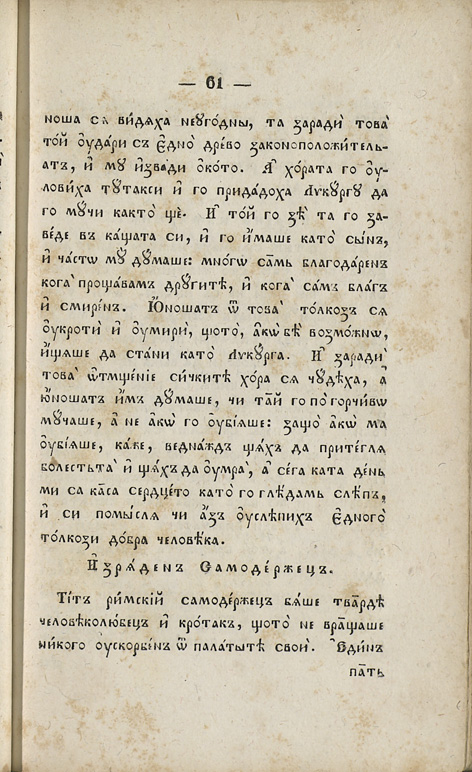 — 61 —
ноша сѧ ви́дѧха неꙋго́дны, та зарадѝ това̀
то́й ᲂу҆да́ри съ є҆дно̀ дре́во законоположи́тель-
атъ, и҆ мꙋ и҆зва́ди ѻ҆ко́то. А҆ хо́рата го ᲂу҆-
лови́ха тꙋ́такси и҆ го прида́доха Лꙋкꙋ́ргꙋ да
го мꙋ́чи както̀ щѐ. И҆ то́й го зѐ та го за-
ве́де въ кѫ́щата си, и҆ го и҆́маше като̀ сы́нъ,
и҆ ча́стѡ мꙋ̀ дꙋ́маше: мно́гѡ са́мь благода́ренъ
кога̀ проща́вамъ дрꙋги́тѣ, и҆ кога̀ са́мъ бла́гъ
и҆ смире́нъ. Ю҆́ношатъ ѿ това̀ то́лкозъ сѧ
ᲂу҆кротѝ и҆ ᲂу҆мирѝ, щото̀, а҆́кѡ бѣ̀ возмо́жнѡ,
и҆́щѧше да ста́ни като̀ Лꙋкꙋ́рга. И҆ зарадѝ
това̀ ѿмще́нїе си́чкитѣ хо́ра сѧ чꙋ́дѣха, а҆
ю҆́ношатъ и҆̀мъ дꙋ́маше, чи та́й го по го́рчивѡ
мꙋ́чаше, а҆ не а҆́кѡ го ᲂу҆бі́ѧше: защо̀ а҆́кѡ ма
ᲂу҆бі́ѧше, ка́же, ведна́ждъ щѧ́хъ да прите́глѧ
болестьта̀ и҆ щѧ́хъ да ᲂу҆мра̀, а҆ се́га ката де́нь
ми са ка́са сердце́то като̀ го глє́дамь слѣ́пъ,
и҆ си помы́слѧ чи а҆́зъ ᲂу҆слѣпи́хъ є҆дного̀
то́лкози до́бра человѣ́ка.
И҆зрѧ́денъ Самоде́ржецъ.
Ти́тъ ри́мскїй самоде́ржецъ бѧ́ше твѫ́рдѣ
человѣколю́бецъ и҆ кро́такъ, щото̀ не враща́ше
ни́кого ᲂу҆скорбе́нъ ѿ пала́тытѣ свои̑. Є҆ди́нъ
пѫ́ть